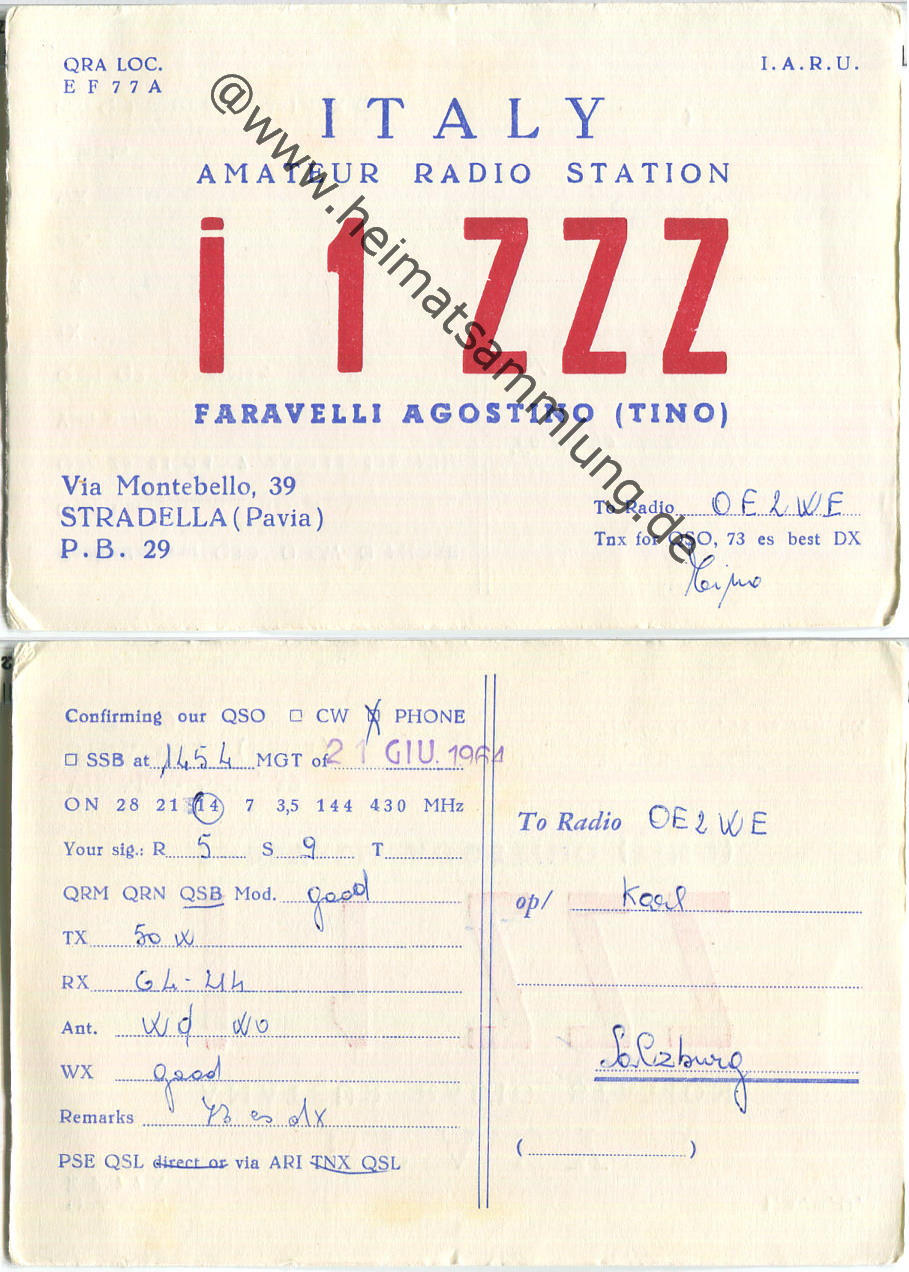 QRA LOC.
E F 7 7 A
I. A. R. U.
ITALY
AMATEUR RADIO STATION
i 1 ZZZ
FARAVELLI AGOSTINO (TINO)
Via Montebello, 39
STRADELLA (Pavia)
P.B. 29
To Radio OE2WE
Tnx for QSO, 73 es best DX
Tino
@www.heimatsammlung.de
Confirming our QSO □ CW □ PHONE
□ SSB at 1454 MGT of 21 GIU. 1964
ON 28 21 14 7 3,5 144 430 MHz
Your sig.: R 5 S 9 T
QRM QRN QSB Mod. good
TX 50 w
RX G4-214
Ant.
WX good
Remarks 73 es dx
PSE QSL direct or via ARI TNX QSL
To Radio OE2WE
op/ Karl
Salzburg
( )